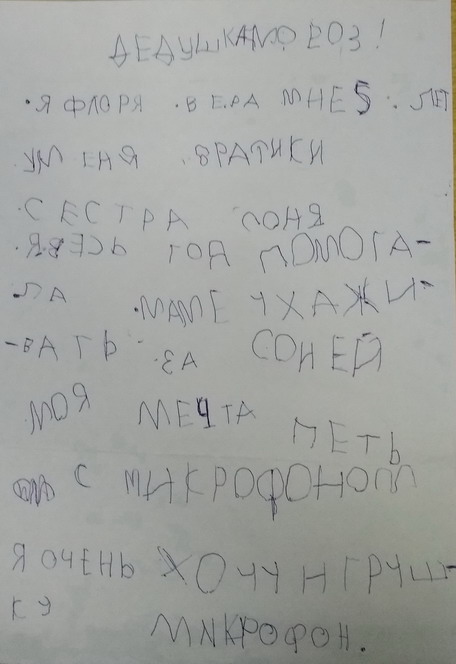 ДЕДУШКА МОРОЗ!
Я ФЛОРЯ ВЕРА МНЕ 5 ЛЕТ
У МЕНЯ БРАТИКИ
СЕСТРА СОНЯ
Я ВЕСЬ ГОД ПОМОГА-
ЛА МАМЕ УХАЖИ-
-ВАТЬ ЗА СОНЕЙ
МОЯ МЕЧТА
ПЕТЬ
С МИКРОФОНОМ
Я ОЧЕНЬ ХОЧУ ИГРУШ-
КУ
МИКРОФОН.